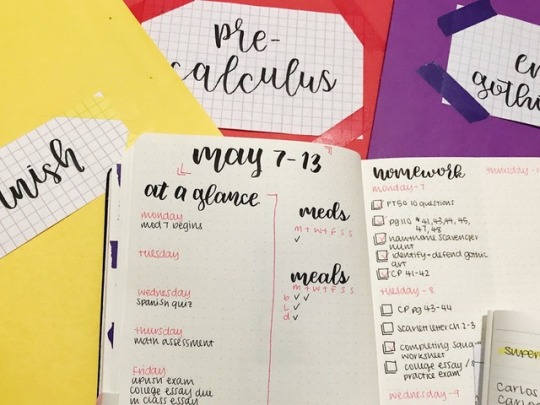 pre-
calculus
may 7-13
at a glance
monday
mod 7 begins
tuesday
wednesday
spanish quiz
thursday
math assessment
friday
apush exam
college essay due
in class essay
meds
m t w t f s s
✓
meals
m t w t f s s
b ✓ ✓
L ✓
d ✓
homework
monday-7
PT50 10 questions
pg 110 # 41, 43, 44, 45,
47, 48
hawthorne scavenger
hunt
identify-defend gothic
art
CP 41-42
tuesday-8
CP pg 43-44
scarlet letter ch 2-3
completing square
worksheet
college essay
practice exam
wednesday-9
thursday
Carlos